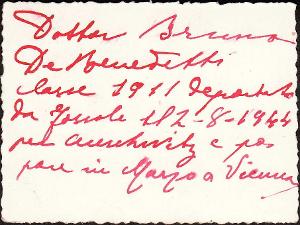 Dottor Bruno
De Benedetti
classe 1911 deportato
da Fossoli il 2-8-1944
per Auschwitz e poi
pare in Marzo a Vienna